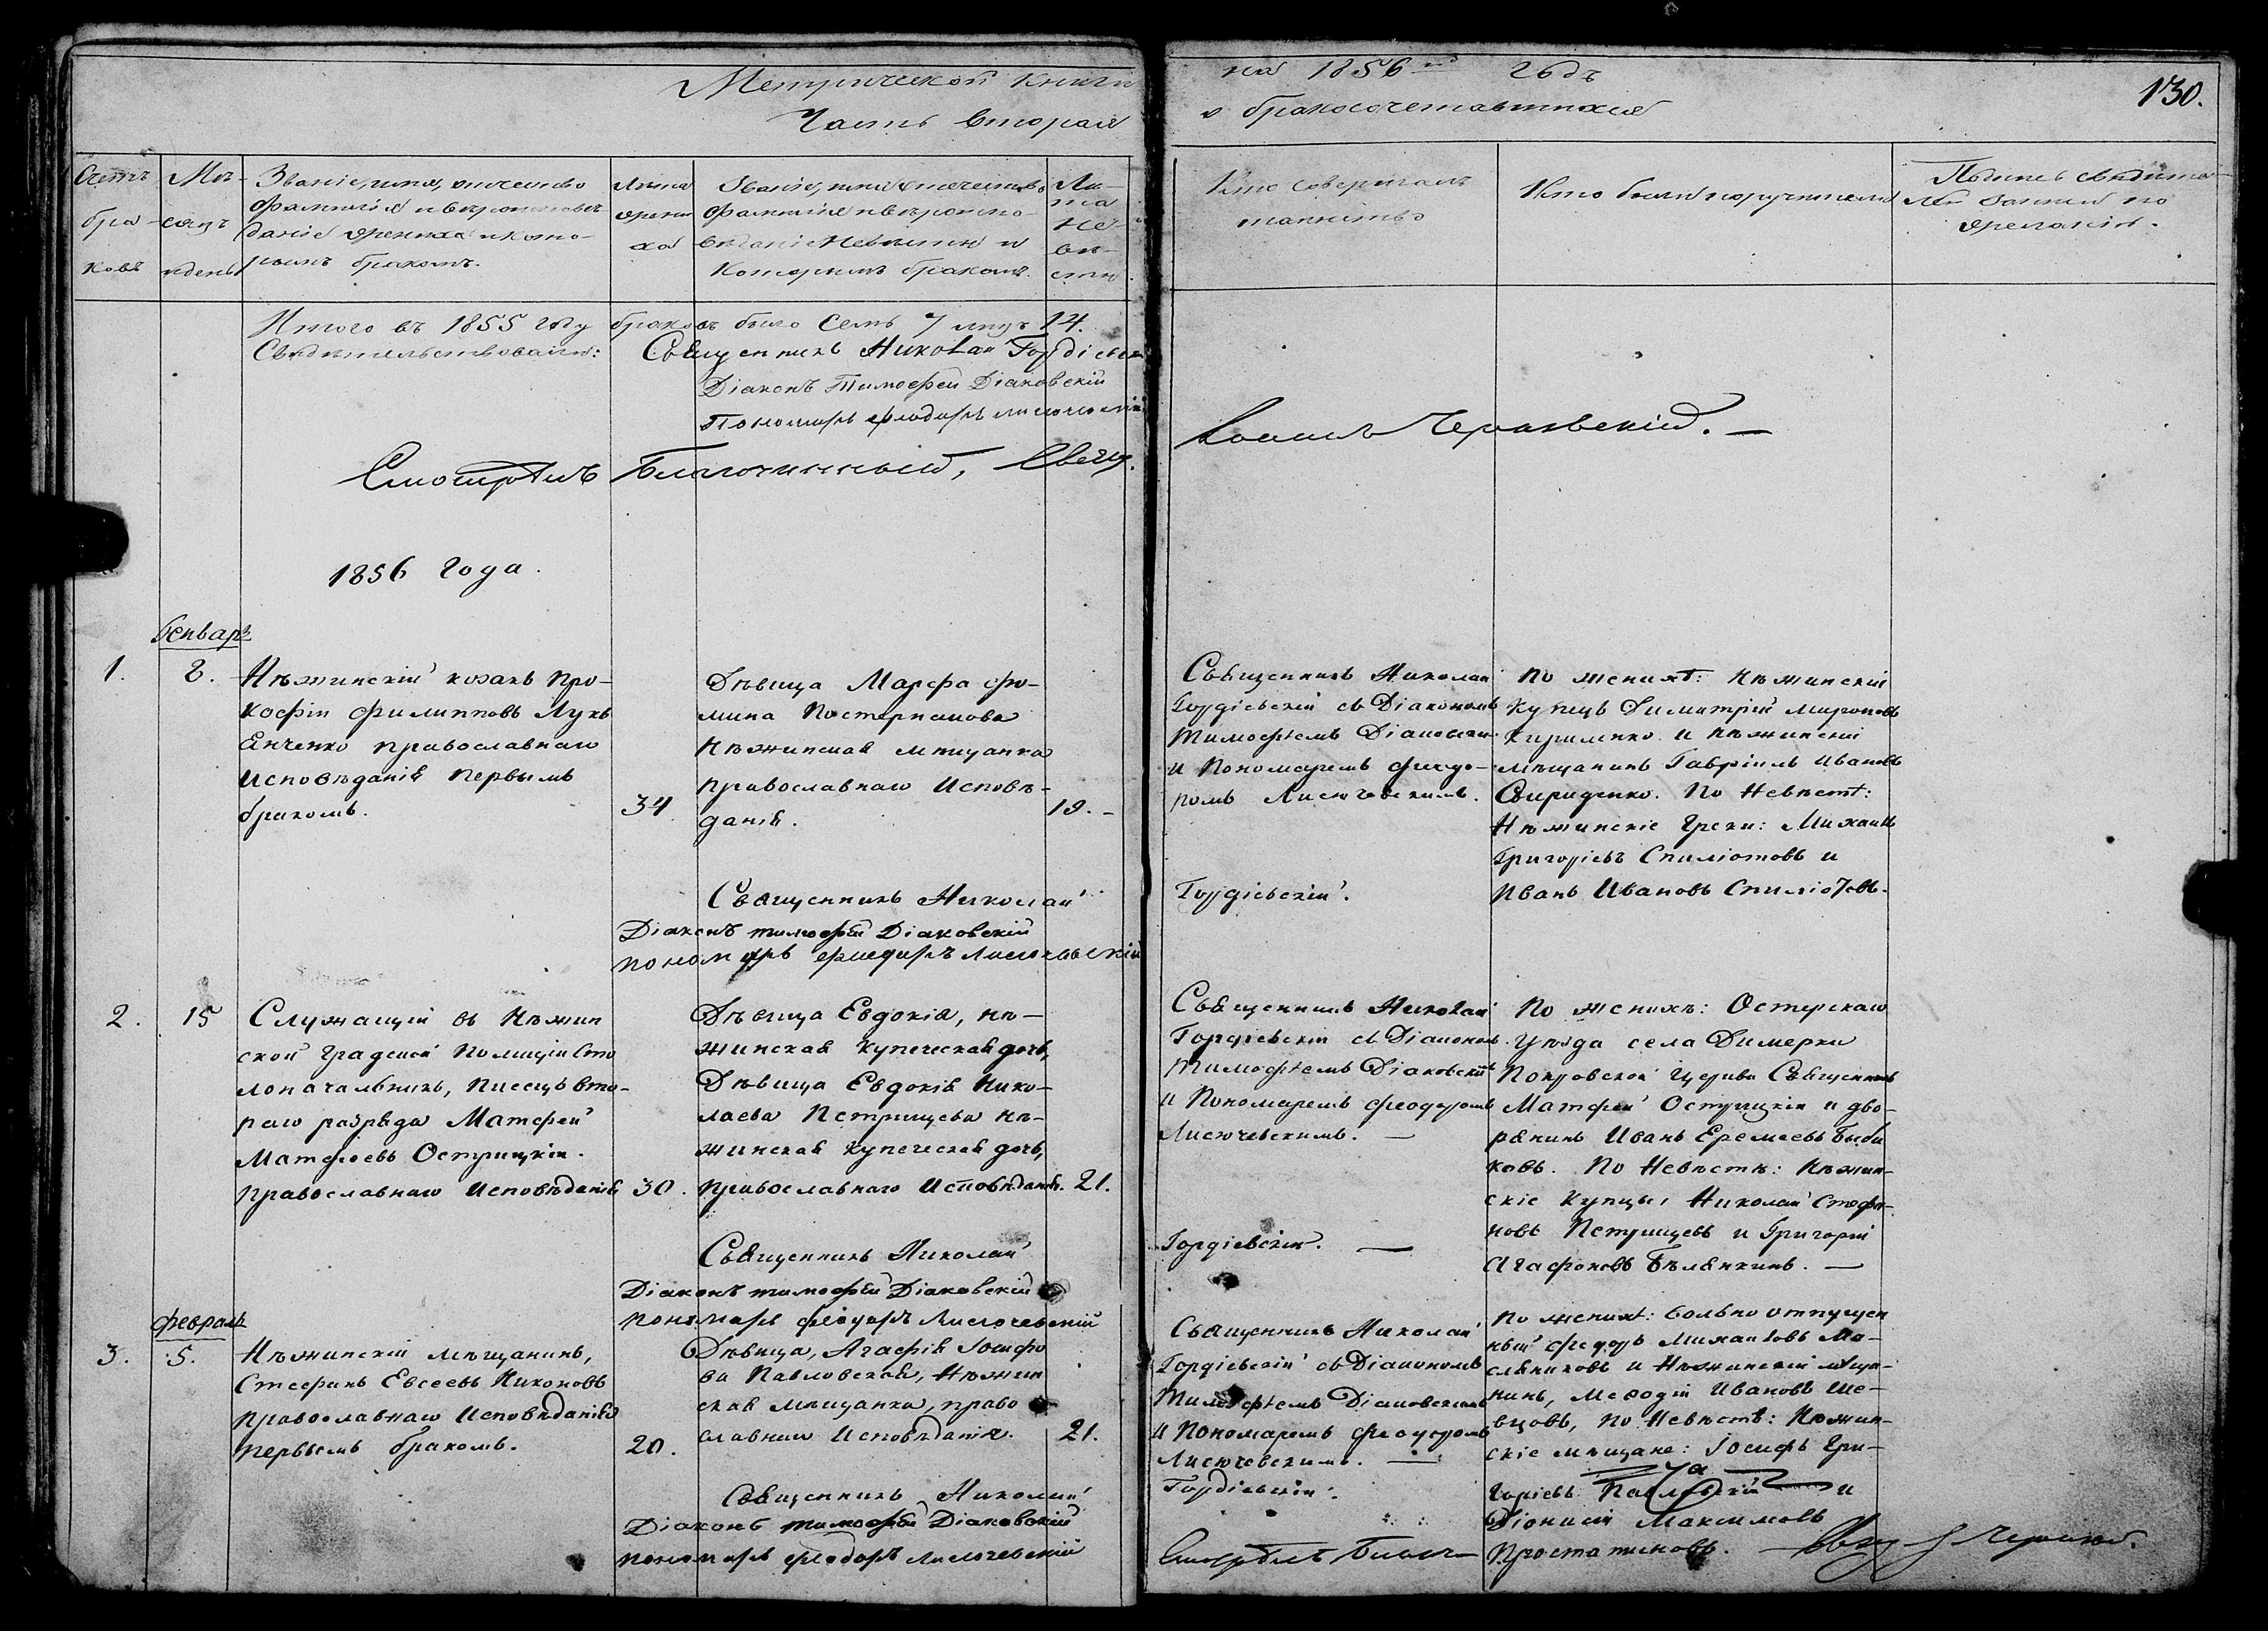 Метрической книги
Часть вторая
на 1856й годъ
о бракосочетавшихся
130.
Счетъ
бра-
ковъ
Мѣ-
сяцъ
и день
Званіе, имя, отчество
фамилія и вѣроисповѣ-
даніе жениха и кото-
рымъ бракомъ.
Лѣта
жени
ха
Званіе, имя, отчество,
фамилія и вѣроиспо-
вѣданіе невѣсты и
которымъ бракомъ.
Лѣ-
та
не-
вѣ-
сты.
Кто совершалъ
таинство
Кто были поручители
Подпись свидѣте-
лей записи по
желанію.
Итого въ 1855 году браковъ было семь 7 лицъ 14.
Свидѣтельствовали:
Священникъ Николай Гордіевскій
Діаконъ Тимофей Діаковскій
Пономарь Феодоръ Лисючевскій
Смотрѣлъ Благочинный, Свящ.
1856 года.
Январь
1.
8.
Нѣжинскій козакъ Про-
кофій Филипповъ Лукъ
Янченко православнаго
исповѣданія первымъ
бракомъ.
34
Дѣвица Марфа Фо-
мина Постернакова
Нѣжинская мѣщанка
православнаго исповѣ-
данія.
19.
Священникъ Николай
Гордіевскій съ Діакономъ
Тимофеемъ Діаковскимъ
и Пономаремъ Феодо-
ромъ Лисючевскимъ.
По женихѣ: Нѣжинскій
купецъ Димитрій Мироновъ
Кириленко и нѣжинскій
мѣщанинъ Гавріилъ Ивановъ
Свириденко. По Невѣстѣ:
Нѣжинскіе Греки: Михаилъ
Григоріевъ Спиліотовъ и
Иванъ Ивановъ Спиліотовъ.
Священникъ Николай
Гордіевскій.
Діаконъ Тимофей Діаковскій
пономарь Феодоръ Лисючевскій
2.
15
Служащій въ Нѣжин
ской Градской Полиціи Сто
лоначальникъ, Писецъ вто-
раго разряда Матфей
Матфеевъ Острицкій.
православнаго исповѣданія
30.
Дѣвица Евдокія, нѣ-
жинская купеческая дочь,
Дѣвица Евдокія Нико-
лаева Петрищева нѣ-
жинская купеческая дочь,
православнаго исповѣданія.
21.
Священникъ Николай
Гордіевскій съ Діакономъ
Тимофеемъ Діаковскимъ
и Пономаремъ Феодоромъ
Лисючевскимъ. —
По женихѣ: Остерскаго
уѣзда села Димерки
Покровской Церкви Священникъ
Матфей Острицкій и дво-
рянинъ Иванъ Еремеевъ Быби
ковъ. По Невѣстѣ: Нѣжин-
скіе купцы, Николай Стефа-
новъ Петрищевъ и Григорій
Агафоновъ Бѣлянкинъ. —
Священникъ Николай
Гордіевскій. —
Діаконъ Тимофей Діаковскій
пономарь Феодоръ Лисючевскій
Февраль
3.
5.
Нѣжинскій мѣщанинъ,
Стефанъ Евсеевъ Никоновъ
православнаго исповѣданія
первымъ бракомъ.
20.
Дѣвица, Агафія Іосифо
ва Павловская, Нѣжин
ская мѣщанка, право
славнаго исповѣданія.
21.
Священникъ Николай
Гордіевскій съ Діакономъ
Тимофеемъ Діаковскимъ
и Пономаремъ Феодоромъ
Лисючевскимъ. —
По женихѣ: вольно отпущен
ный Феодоръ Михаиловъ Ма-
сляниковъ и Нѣжинскій мѣща-
нинъ, Мефодій Ивановъ Ше-
вцовъ, по Невѣстѣ: Нѣжин-
скіе мѣщане: Іосифъ Гри-
горіевъ Павловскій и
Діонисій Максимовъ
Простатиновъ.
Священникъ Николай
Гордіевскій.
Діаконъ Тимофей Діаковскій
пономарь Феодоръ Лисючевскій
Смотрѣлъ Благоч